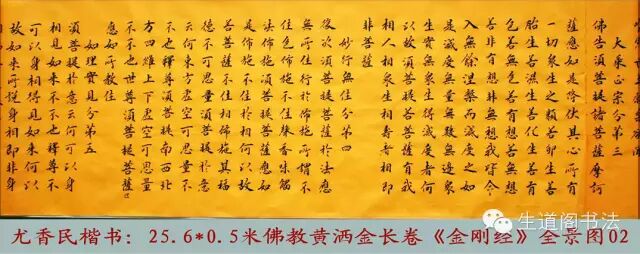 大乘正宗分第三
佛告須菩提諸菩薩摩訶
薩應如是降伏其心所有
一切眾生之類若卵生若
胎生若濕生若化生若有
色若無色若有想若無想
若非有想非無想我皆令
入無餘涅槃而滅度之如
是滅度無量無數無邊眾
生實無眾生得滅度者何
以故須菩提若菩薩有我
相人相眾生相壽者相即
非菩薩
妙行無住分第四
復次須菩提菩薩於法應
無所住行於佈施所謂不
住色佈施不住聲香味觸
法佈施須菩提菩薩應如
是佈施不住於相何以故
若菩薩不住相佈施其福
德不可思量須菩提於意
云何東方虛空可思量不
不也世尊須菩提南西北
方四維上下虛空可思量
不不也世尊須菩提菩薩
應如所教住
如理實見分第五
須菩提於意云何可以身
相見如來不不也世尊不
可以身相得見如來何以
故如來所說身相即非身
生道阁书法
尤香民楷书：25.6*0.5米佛教黄洒金长卷《金刚经》全景图02